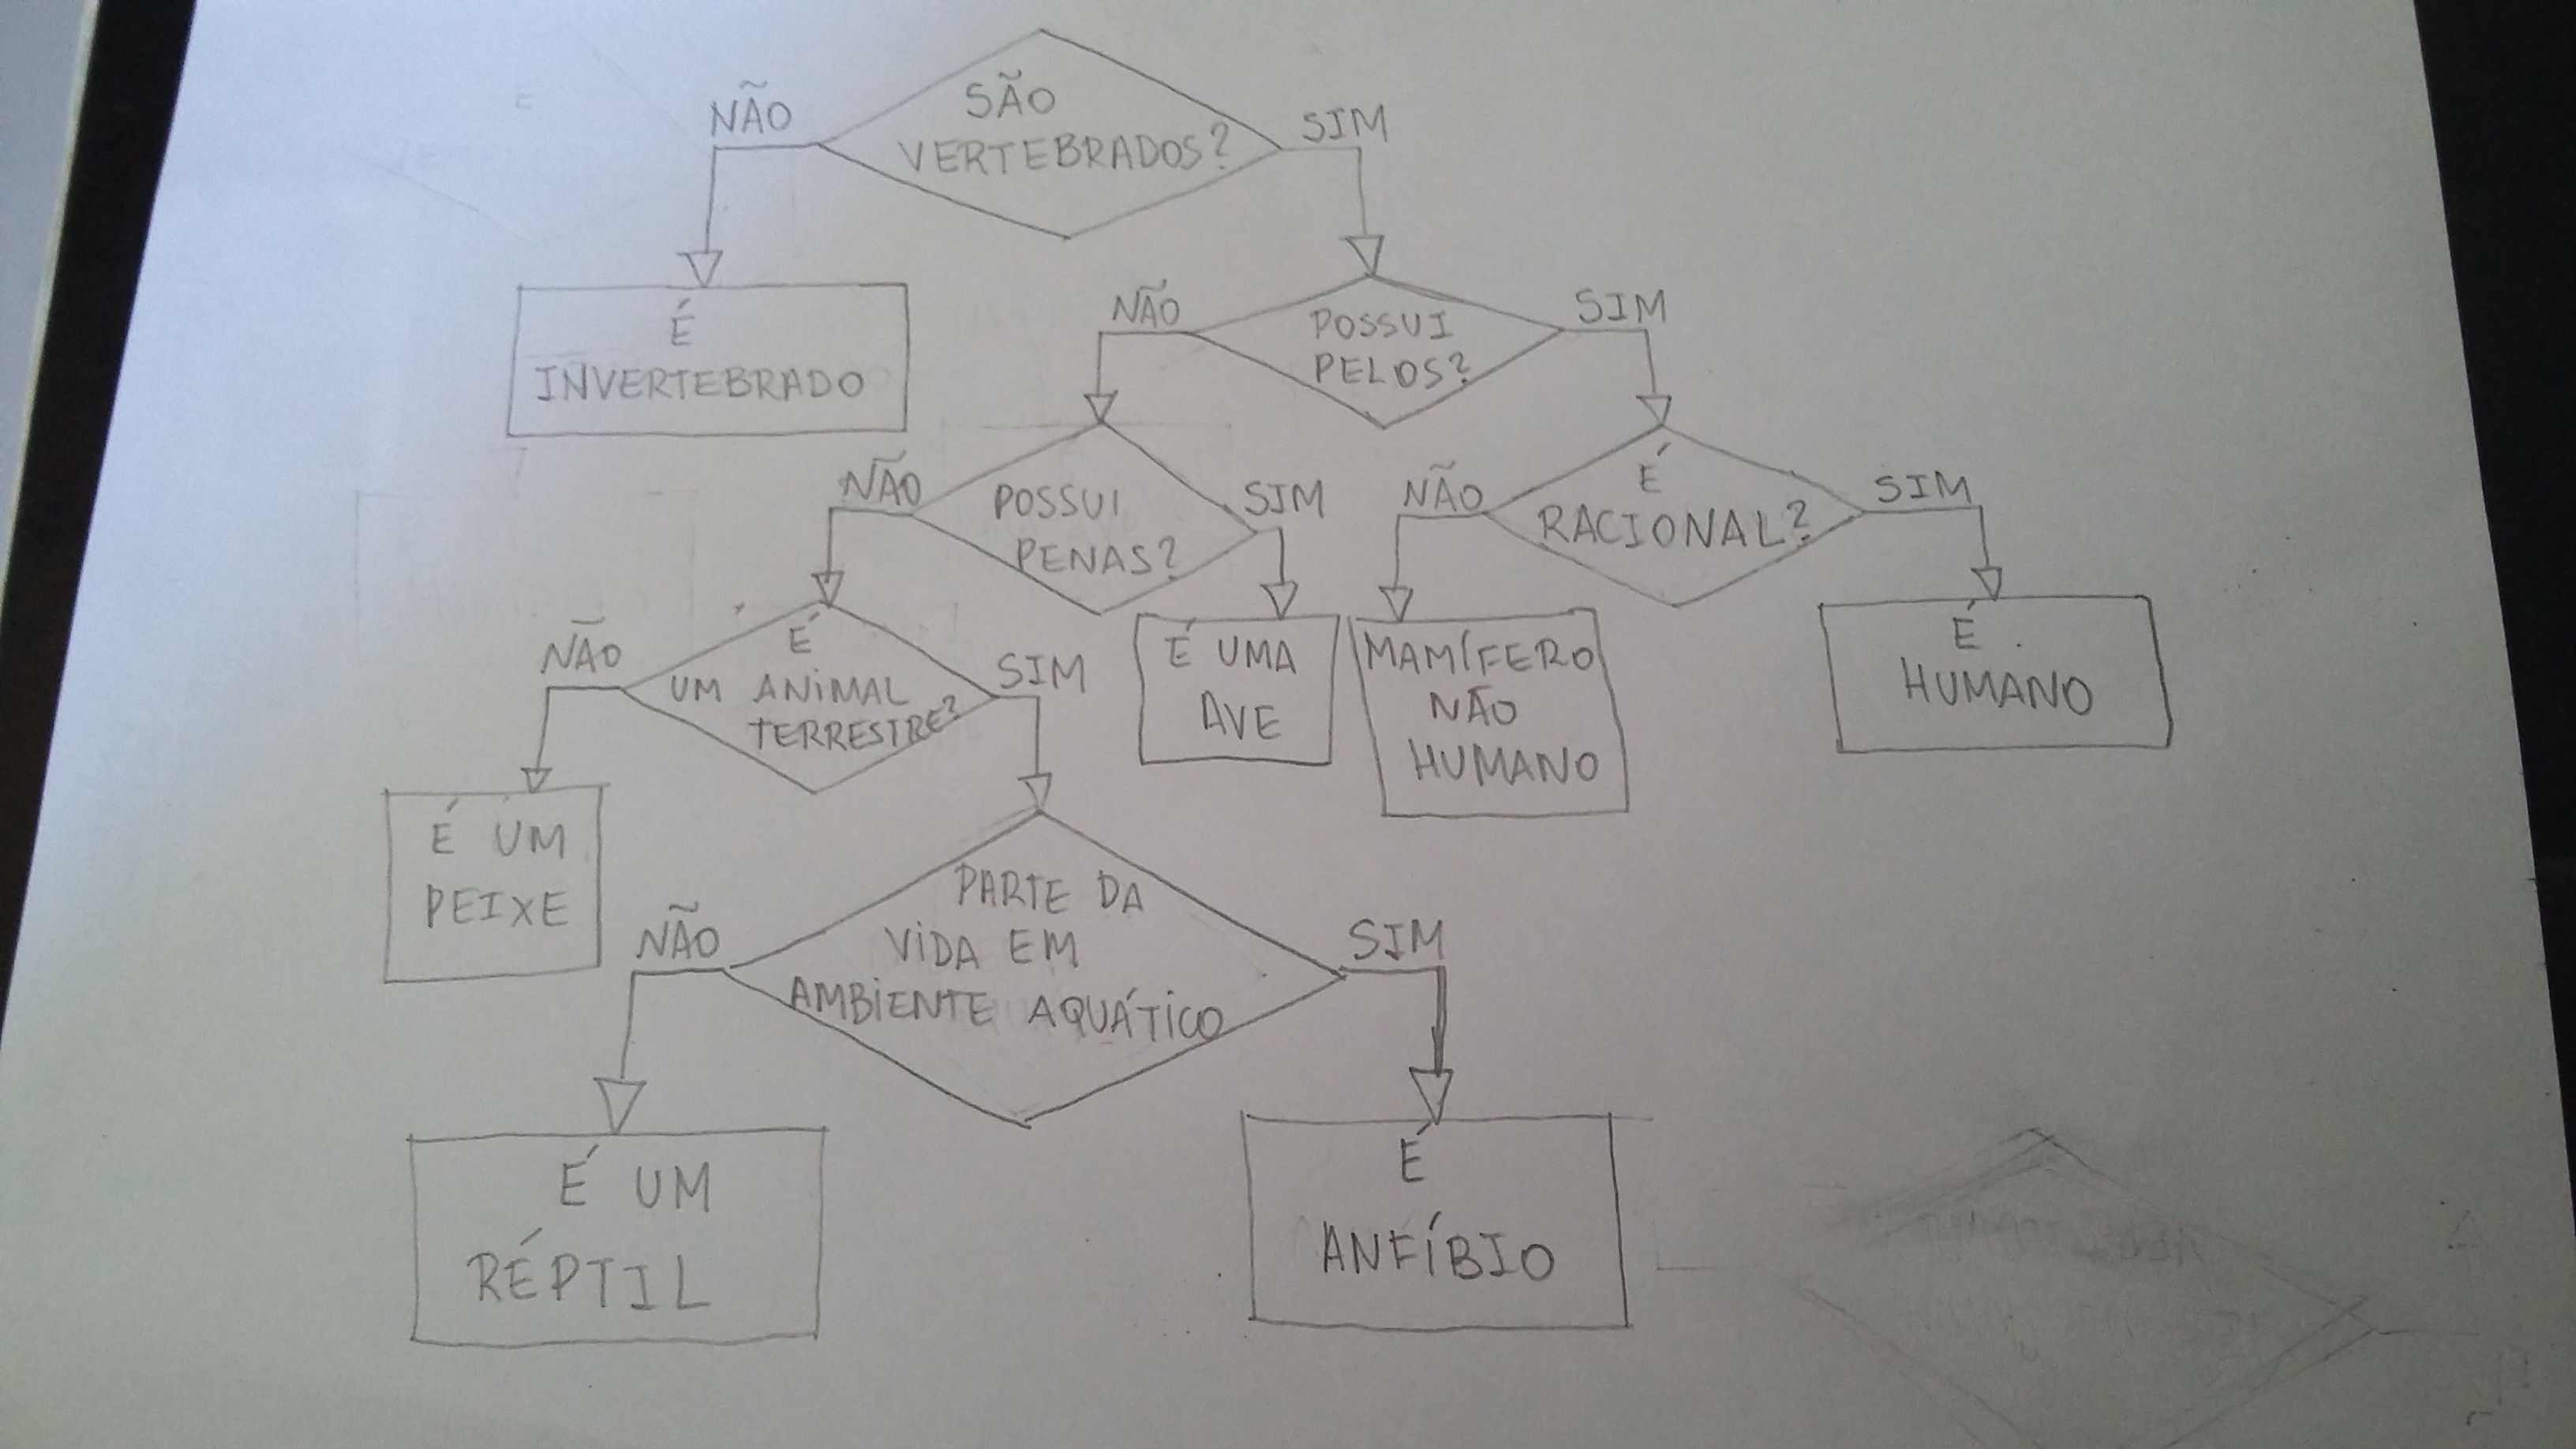 SÃO
VERTEBRADOS?
NÃO
SIM
É
INVERTEBRADO
POSSUI
PELOS?
NÃO
SIM
POSSUI
PENAS?
NÃO
SIM
É
RACIONAL?
NÃO
SIM
É
UM ANIMAL
TERRESTRE?
NÃO
SIM
É UMA
AVE
MAMÍFERO
NÃO
HUMANO
É
HUMANO
É UM
PEIXE
PARTE DA
VIDA EM
AMBIENTE AQUÁTICO
NÃO
SIM
É UM
RÉPTIL
É
ANFÍBIO